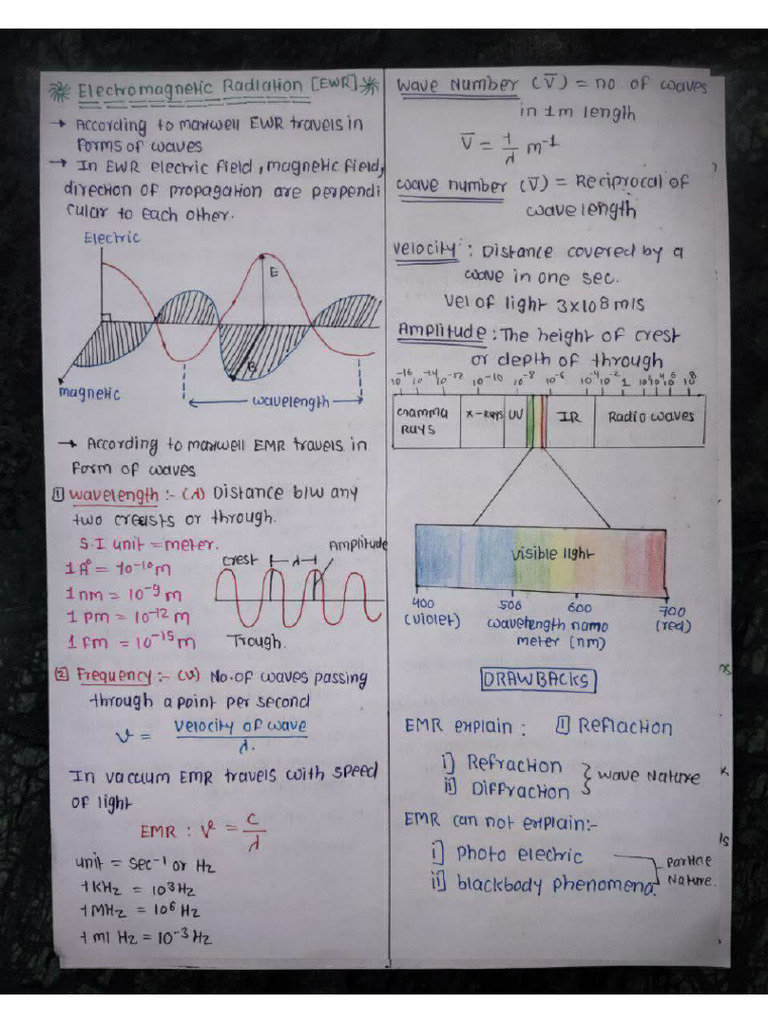 Electromagnetic Radiation [EWR]
→ According to maxwell EWR travels in
forms of waves
→ In EWR electric field, magnetic field,
direction of propagation are perpendi
cular to each other.
Electric
E
B
magnetic
wavelength
→ According to maxwell EMR travels in
form of waves
① wavelength :- (λ) Distance b/w any
two creasts or through.
S.I unit = meter.
1 A° = 10-10 m
1 nm = 10-9 m
1 pm = 10-12 m
1 fm = 10-15 m
Crest
λ
Amplitude
Trough.
② Frequency :- (ν) No. of waves passing
through a point per second
ν = velocity of wave
λ.
In vacuum EMR travels with speed
of light
EMR : ν = C
λ
unit = sec-1 or Hz
1 KHz = 103 Hz
1 MHz = 106 Hz
1 ml Hz = 10-3 Hz
Wave Number (V̅) = no. of waves
in 1m length
V̅ = 1/λ m-1
wave number (V̅) = Reciprocal of
wave length
Velocity : Distance covered by a
wave in one sec.
Vel of light 3×108 m/s
Amplitude : The height of crest
or depth of through
10-16 10-14 10-12 10-10 10-8 10-6 10-4 10-2 1 102 104 106 108
Gramma
Rays
X-Rays
UV
IR
Radio waves
visible light
400
500
600
700
(violet)
wavelength nano
meter (nm)
(red)
DRAWBACKS
EMR explain : ① Reflaction
i] Refraction
ii] Diffraction
wave Nature
EMR can not explain:-
i] Photo electric
ii] blackbody phenomena.
Particle
Nature.